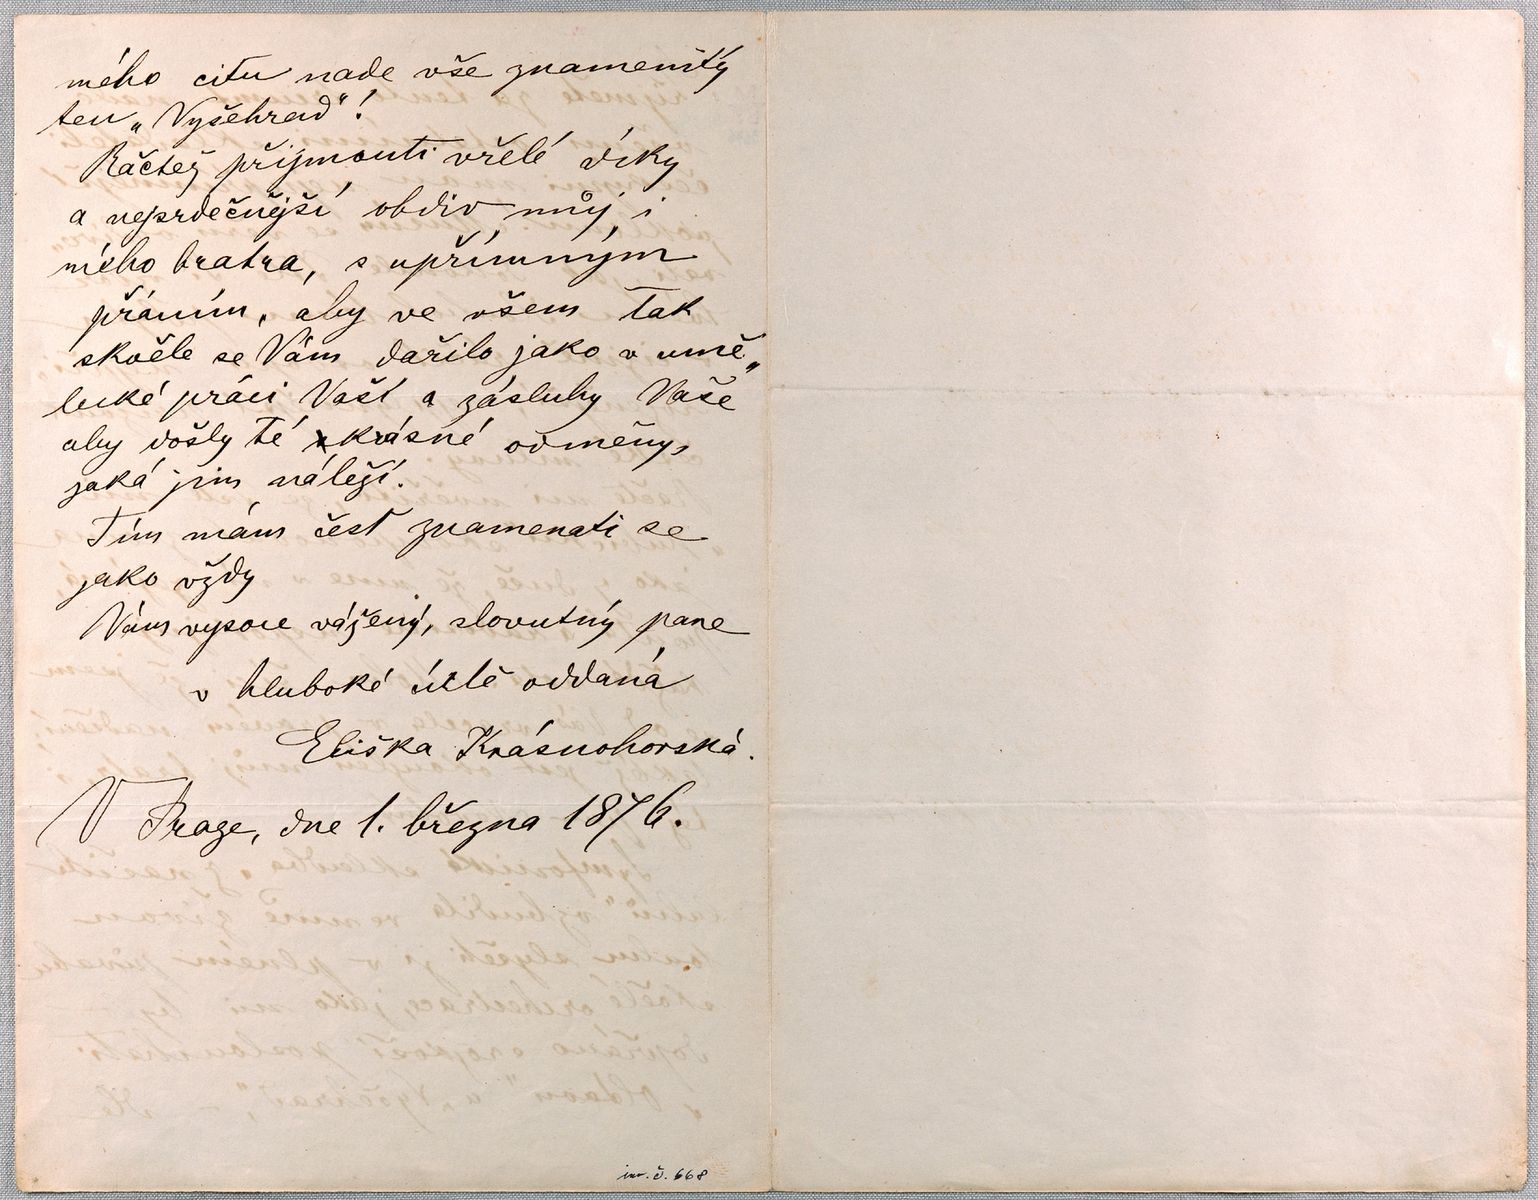 mého citu nade vše znamenitý
ten „Vyšehrad"!
Račtež přijmouti vřelé díky
a nejsrdečnější obdiv můj i
mého bratra, s upřímným
přáním, aby ve všem tak
skvěle se Vám dařilo jako v umě„
lecké práci Vaší a zásluhy Vaše
aby došly té krásné odměny,
jaká jim náleží.
Tím mám čest znamenati se
jako vždy
Vám vysoce vážený, slovutný pane
v hluboké úctě oddaná
Eliška Krásnohorská.
V Praze, dne 1. března 1876.
inv. č. 668